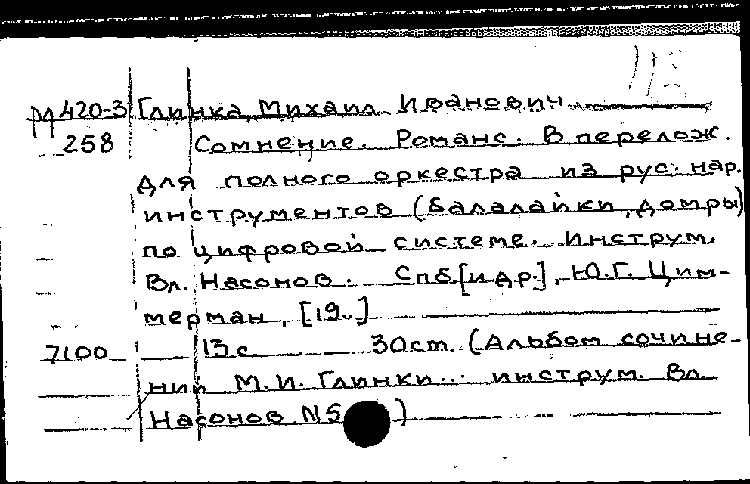 М 420-3 Глинка, Михаил Иванович
258 Сомнение. Романс. В перелож.
для полного оркестра из рус. нар.
инструментов (балалайки, домры)
по цифровой системе. Инструм.
Вл. Насонов. Спб. [и др.], Ю.Г. Цим-
мерман, [19..]
7100 13 с. 30 см. (Альбом сочине-
ний М.И. Глинки... инструм. Вл.
Насонов N5 )